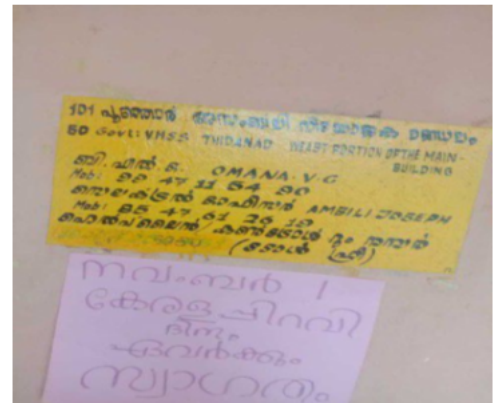 101 പൂഞ്ഞാർ അസംബ്ലി നിയോജക മണ്ഡലം
50 Govt: VHSS THIDANAD WEABT PORTION OF THE MAIN-
BUILDING
ബി.എൽ.ഒ. OMANA.V.G
Mob: 99 47 11 54 90
സെലക്ടറൽ ഓഫീസർ AMBILI JOSEPH
Mob:
ഹെൽപ്പ്‌ലൈൻ / കൺട്രോൾ റൂം നമ്പർ
(ടോൾ ഫ്രീ)
നവംബർ 1
കേരളപ്പിറവി
ദിനം
ഏവർക്കും
സ്വാഗതം